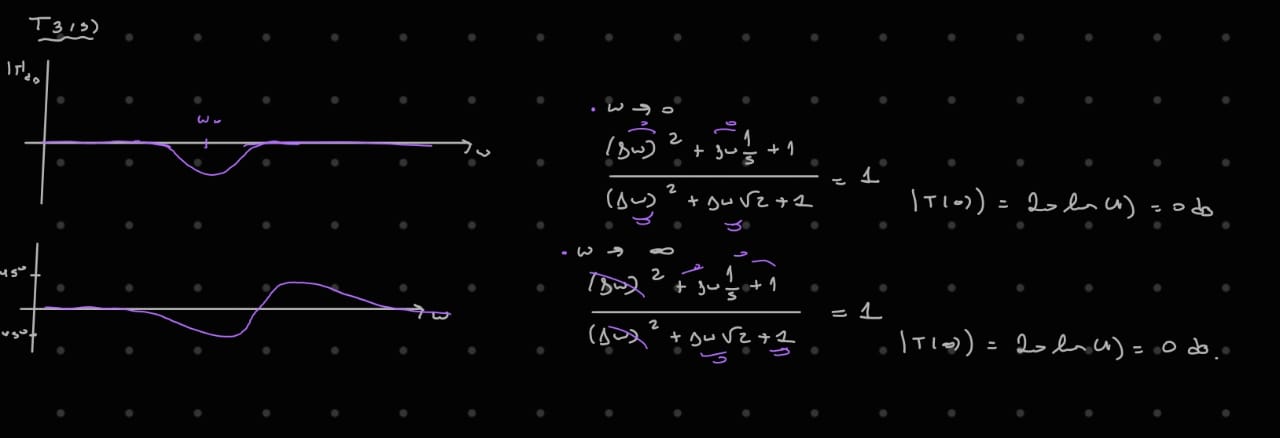 T3(s)
|T|db
ω₀
ω
45°
45°
ω
· ω → 0
(jω)² + jω 1/5 + 1
(jω)² + jω √2 + 1
= 1
|T(0)| = 20 ln(1) = 0 db
· ω → ∞
(jω)² + jω 1/5 + 1
(jω)² + jω √2 + 1
= 1
|T(∞)| = 20 ln(1) = 0 db.